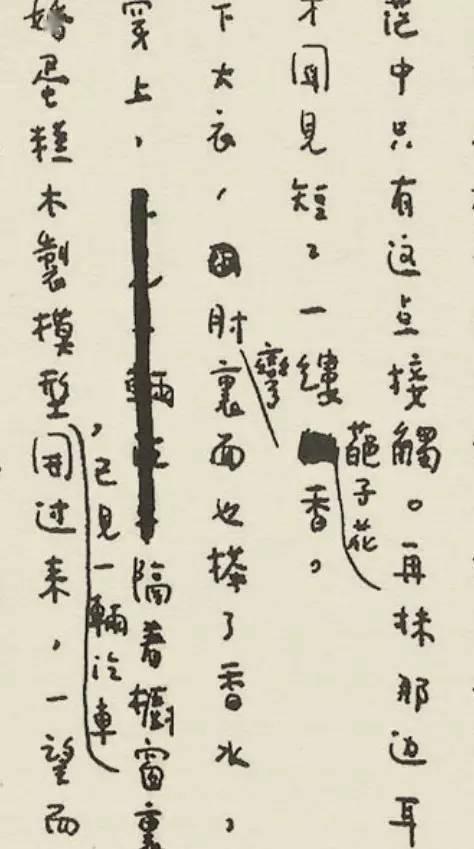 茫中只有这点接觸。再抹那边耳
才闻见短々一縷葩子花香。
下大衣，肘彎裏面也搽了香水，
穿上，隔着櫥窗裏
婚蛋糕木製模型，已見一輛汽車开过来，一望而